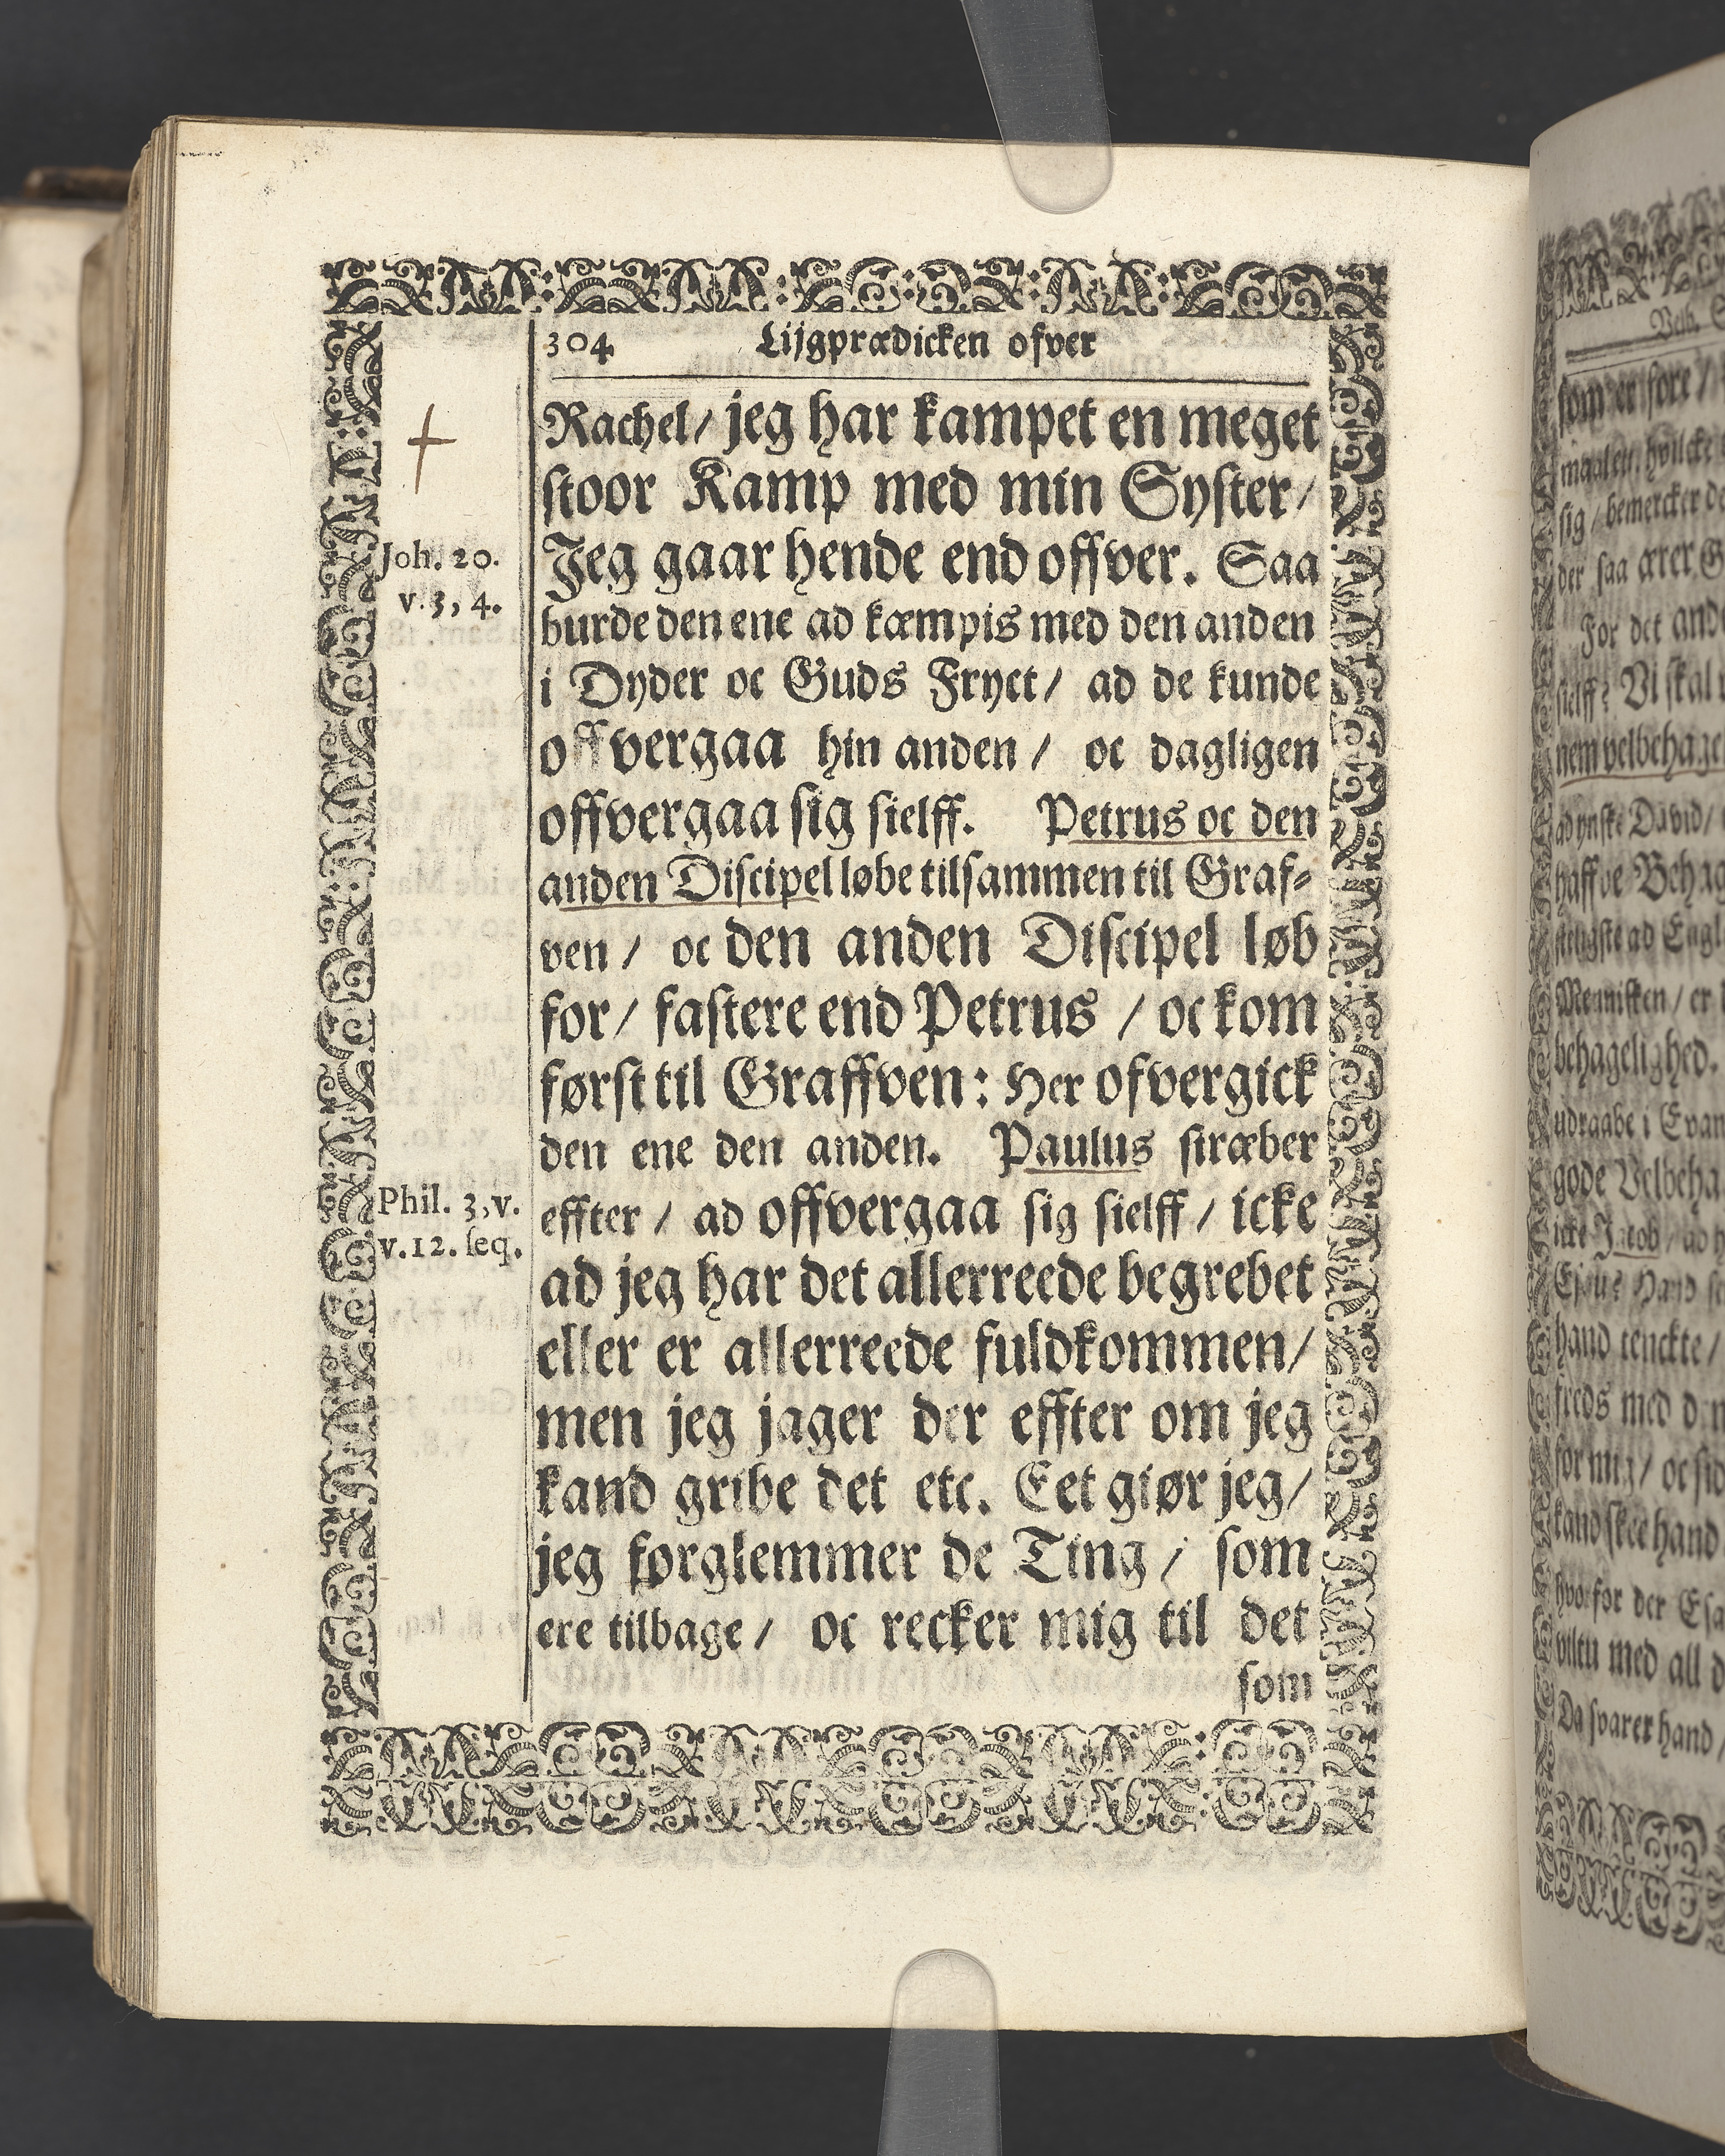 304 Lijgprædicken ofver
Rachel/ jeg har kampet en meget
stoor Kamp med min Syster/
Joh. 20.
v. 3, 4.
Jeg gaar hende end offver. Saa
burde den ene ad kæmpis med den anden
i Dyder oc Guds Fryct/ ad de kunde
offvergaa hin anden / oc dagligen
offvergaa sig sielff. Petrus oc den
anden Discipel løbe tilsammen til Graf-
ven / oc den anden Discipel løb
for/ fastere end Petrus / oc kom
først til Graffven: Her ofvergick
den ene den anden. Paulus stræber
Phil. 3, v.
v. 12. seq.
effter / ad offvergaa sig sielff / icke
ad jeg har det allerreede begrebet
eller er allerreede fuldkommen/
men jeg jager der effter om jeg
kand gribe det etc. Eet giør jeg/
jeg forglemmer de Ting / som
ere tilbage / oc recker mig til det
som